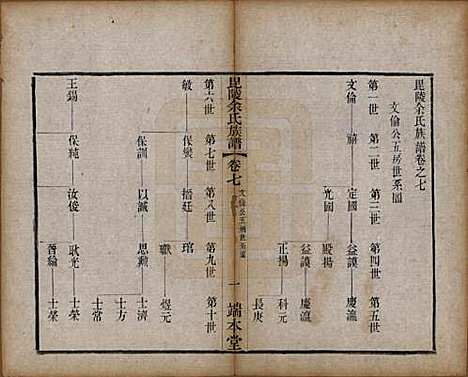 毘陵余氏族譜卷之七
文倫公五房世系圖
第一世 第二世 第三世 第四世 第五世
文倫 嗣 定國 益謨 慶瀛
光國 殿揚 益謨 慶瀛
正揚 科元
長庚
毘陵余氏族譜 卷七 文倫公五房世系圖 一 端本堂
第六世 第七世 第八世 第九世 第十世
敏 保燮 搢廷 琯
職 煜元
保訓 以誠 思勳 士濟
士方
士常
王錫 保純 汝俊 耿光 士榮
晉綸 士榮